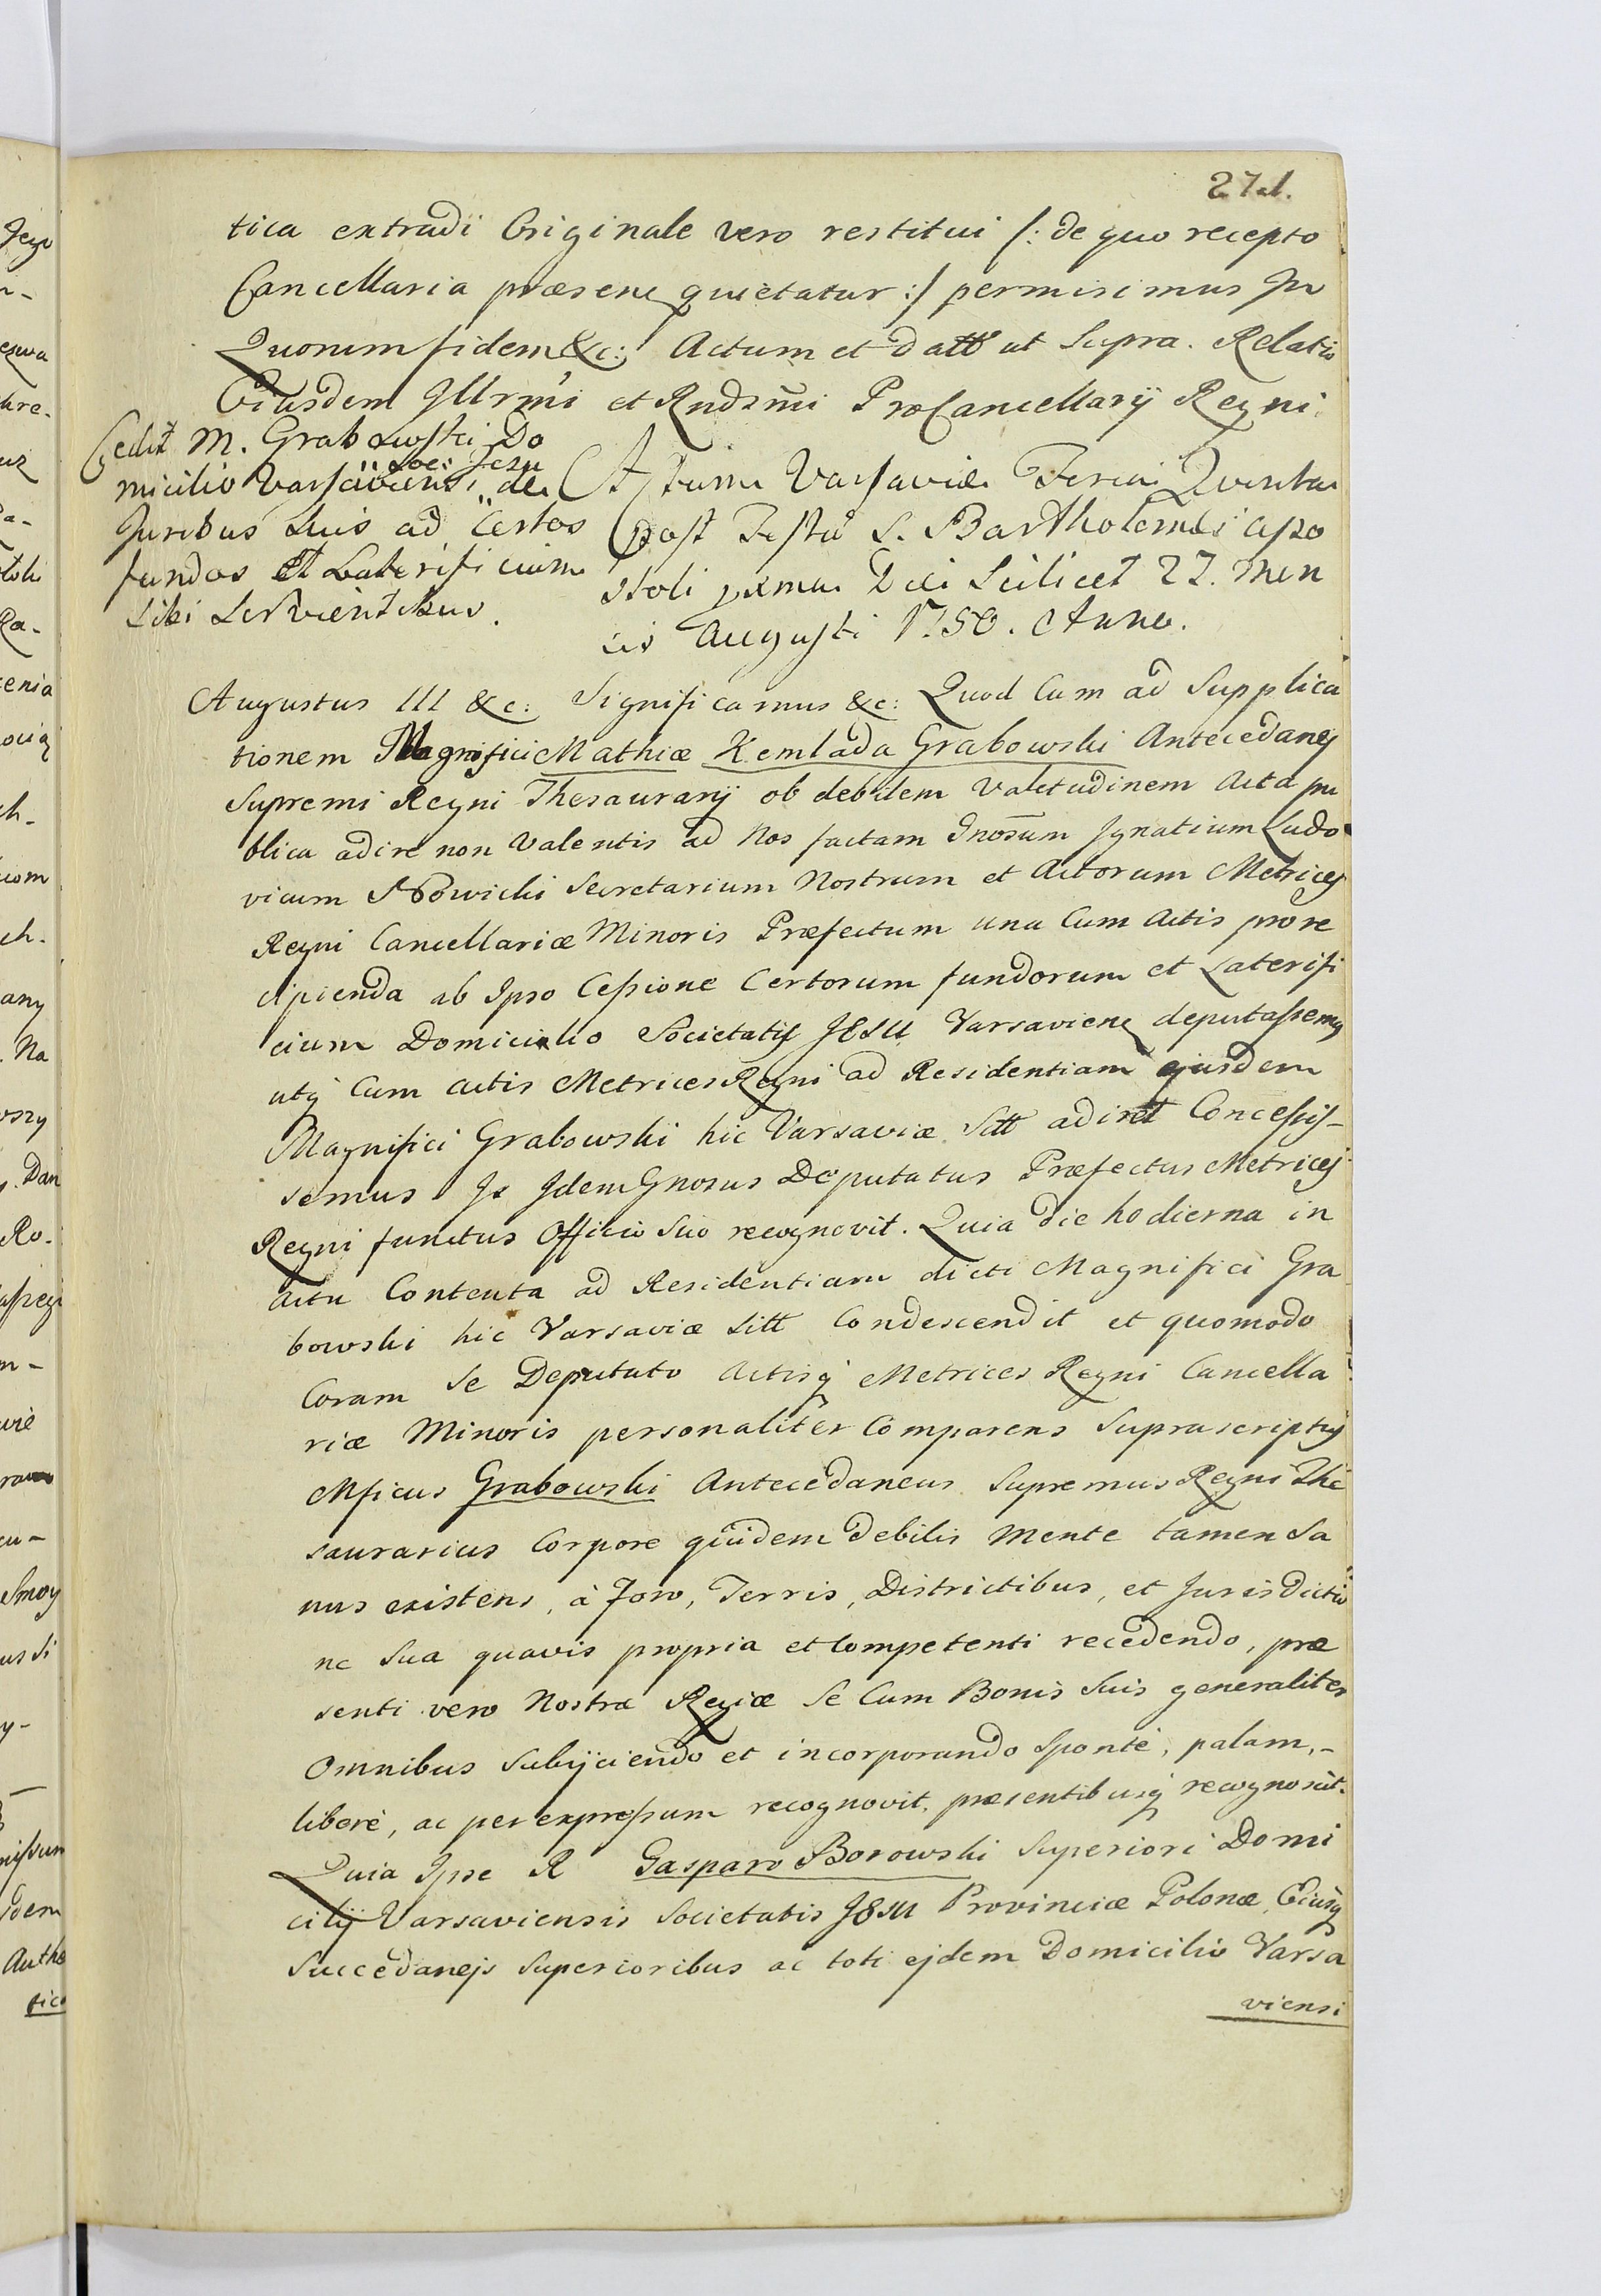 271.
tica extradi Originale vero restitui /: de quo recepto
Cancellaria præsens quietatur :/ permisimus In
Quorum fidem &c: Actum et Datt ut Supra. Relatio
Eiusdem Illrmi et Rndsmi ProCancellarij Regni.
Cedit M. Grabowski Do
Soc: Jesu
micilio Varsaviensi de
Juribus Suis ad Certos
fundos et Laterificium
Sibi Servientibus.
Actum Varsaviæ Feria Quinta
post Festū S. Bartholomæi Apo
stoli Die Scilicet 27. Men
sis Augusti 1750. Anno.
Augustus III &c: Significamus &c: Quod Cum ad Supplica
tionem Magnifici Mathiæ Kemlada Grabowski Antecedanej
Supremi Regni Thesaurarij ob debilem Valetudinem Acta pu
blica adire non Valentis ad Nos factam Gnosum Ignatium Ludo
vicum Nowicki Secretarium Nostrum et Actorum Metrices
Regni Cancellariæ Minoris Præfectum una Cum Actis pro re
cipienda ab Ipso Cessione Certorum fundorum et Laterifi
cium Domicilio Societatis JESU Varsaviens deputassemq
utq Cum Actis Metrices Regni ad Residentiam ejusdem
Magnifici Grabowski hic Varsaviæ Sitt adiret Concessis-
semus Is Idem Gnosus Deputatus Præfectus Metrices
Regni functus Officio Suo recognovit. Quia die hodierna in
Actu Contenta ad Residentiam dicti Magnifici Gra
bowski hic Varsaviæ Sitt Condescendit et quomodo
Coram Se Deputato Actisq Metrices Regni Cancella
riæ Minoris personaliter Comparens Suprascriptus
Mficus Grabowski Antecedaneus Supremus Regni The
saurarius Corpore quidem debilis Mente tamen Sa
nus existens, à Foro, Terris, Districtibus, et Jurisdictio
ne Sua quavis propria et Competenti recedendo, præ
senti vero Nostræ Regiæ Se Cum Bonis Suis generaliter
Omnibus Subijciendo et incorporando Sponte, palam,-
liberè, ac per expressum recognovit, præsentibusq recognoscit.
Quia Ipse R Gasparo Borowski Superiori Domi
cilij Varsaviensis Societatis JESU Provinciæ Polonæ, Eiusq
Succedanejs Superioribus ac toti ejdem Domicilio Varsa
viensi